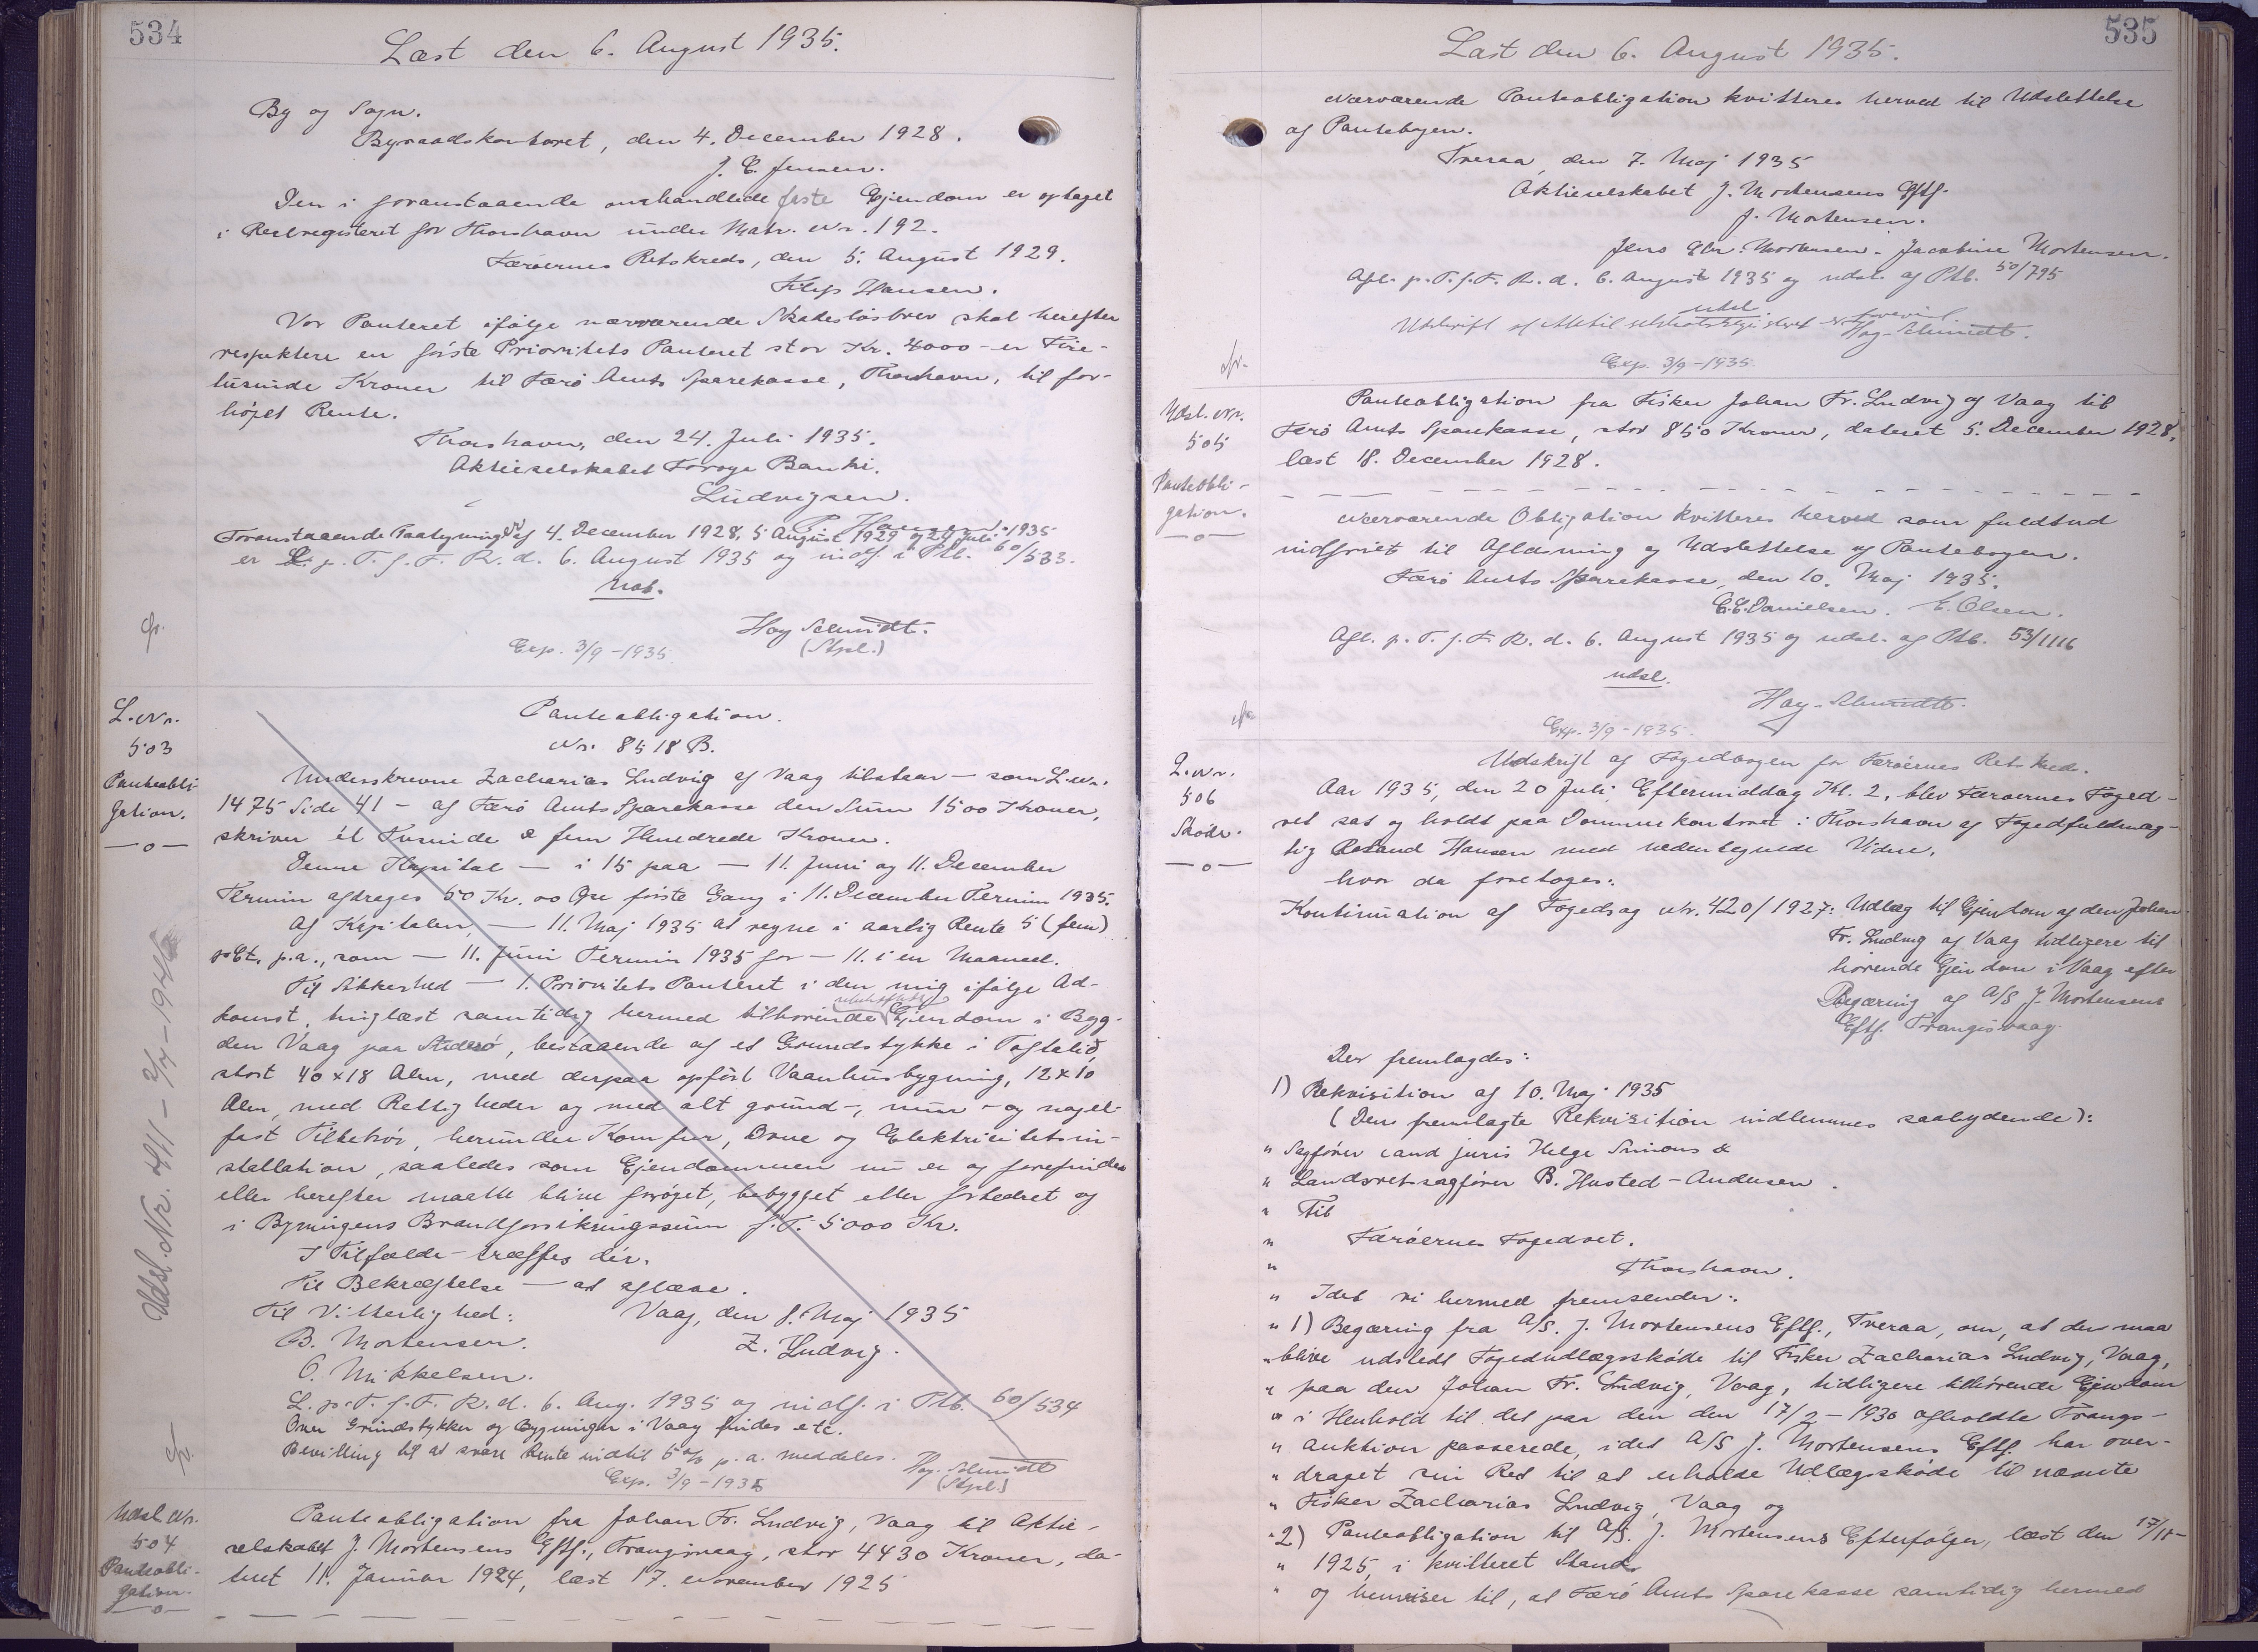 534
Læst den 6. August 1935.
By og Sogn.
Byraadskontoret, den 4. December 1928.
J. C. Jensen.
Den i foranstaaende omhandlede faste Ejendom er optaget
i Realregisteret for Thorshavn under Matr. Nr. 192.
Færøernes Retskreds, den 5. August 1929.
Filip Hansen.
Vor Panteret ifølge nærværende Skadesløsbrev skal herefter
respektere en første Prioritets Panteret stor Kr. 4000 - er Fire-
tusinde Kroner til Færø Amts Sparekasse, Thorshavn, til for-
højet Rente.
Thorshavn, den 24. Juli 1935.
Aktieselskabet Føroya Banki.
Ludvigsen.
P. Hansen.
Foranstaaende Paategninger af 4. December 1928, 5 August 1929 og 24 Juli 1935
er L. p. T. f. F. R. d. 6. August 1935 og indf. i Ptb. 60/533.
not.
Hoy Schmidt.
(Stpl.)
Exp. 3/9 - 1935
L. Nr.
503
Panteobli-
gation.
Panteobligation.
Nr. 8518 B.
Underskrevne Zacharias Ludvig af Vaag tilstaar - som L. Nr.
1475 Side 41 - af Færø Amts Sparekasse den Sum 1500 Kroner,
skriver ét Tusinde & fem Hundrede Kroner.
Denne Kapital - i 15 paa - 11. Juni og 11. December
Termin afdrages 50 Kr. 00 Øre første Gang i 11. December Termin 1935.
Af Kapitalen, - 11. Maj 1935 at regne i aarlig Rente 5 (fem)
pCt. p.a., som - 11. Juni Termin 1935 for - 11. i en Maaned.
Til Sikkerhed - 1. Prioritets Panteret i den mig ifølge Ad-
komst, tinglæst samtidig hermed tilhørende Ejendom i Byg-
den Vaag paa Suderø, bestaaende af et Grundstykke i Toftalið,
stort 40 x 18 Alen, med derpaa opført Vaanhusbygning, 12 x 10
Alen, med Rettigheder og med alt grund-, mur- og nagel-
fast Tilbehør, herunder Komfur, Ovne og Elektricitetsin-
stallation, saaledes som Ejendommen nu er og forefindes
eller herefter maatte blive forøget, bebygget eller forbedret og
i Bygningens Brandforsikringssum f.T. 5000 Kr.
I Tilfælde - træffes dér.
Til Bekræftelse - at aflæse.
Til Vitterlighed: Vaag, den 8. Maj 1935
B. Mortensen. Z. Ludvig.
O. Mikkelsen.
L. p. T. f. F. R. d. 6. Aug. 1935 og indf. i Ptb. 60/534
Over Grundstykker og Bygninger i Vaag findes etc.
Bevilling til at svare Rente indtil 6% p.a. meddeles.
Hoy-Schmidt
(Stpl.)
Exp. 3/9 - 1935
Udsl. Nr. 411 - 2/7 - 1946
Udsl. Nr.
504
Panteobli-
gation.
Panteobligation fra Johan Fr. Ludvig, Vaag til Aktie-
selskabet J. Mortensens Eftf., Trangisvaag, stor 4430 Kroner, da-
teret 11. Januar 1924, læst 17. November 1925
535
Læst den 6. August 1935.
Nærværende Panteobligation kvitteres herved til Udslettelse
af Pantebogen.
Tveraa, den 7. Maj 1935
Aktieselskabet J. Mortensens Eftf.
J. Mortensen.
Jens Chr. Mortensen. Jacobine Mortensen.
Afl. p. T. f. F. R. d. 6. August 1935 og udsl. af Ptb. 50/795
udsl.
Udskrift af Aktieselskabsregisteret er forevist.
Hoy-Schmidt.
Exp. 3/9 - 1935.
Udsl. Nr.
505
Panteobli-
gation.
Panteobligation fra Fisker Johan Fr. Ludvig af Vaag til
Færø Amts Sparekasse, stor 850 Kroner, dateret 5. December 1928,
læst 18. December 1928.
Nærværende Obligation kvitteres herved som fuldtud
indfriet til Aflæsning og Udslettelse af Pantebogen.
Færø Amts Sparekasse, den 10. Maj 1935.
C. E. Danielsen. E. Olsen.
Afl. p. T. f. F. R. d. 6. August 1935 og udsl. af Ptb. 53/1116
udsl.
Hoy-Schmidt.
Exp. 3/9 - 1935.
L. Nr.
506
Skøde.
Udskrift af Fogedbogen for Færøernes Retskreds.
Aar 1935, den 20 Juli, Eftermiddag Kl. 2, blev Færøernes Foged-
ret sat og holdt paa Dommerkontoret i Thorshavn af Fogedfuldmæg-
tig Roland Hansen med undertegnede Vidne,
hvor da foretoges:
Kontinuation af Fogedsag Nr. 420/1927: Udlæg til Ejendom af den Johan
Fr. Ludvig af Vaag tidligere til-
hørende Ejendom i Vaag efter
Begæring af A/S J. Mortensens
Eftf. Trangisvaag.
Der fremlagdes:
1) Rekvisition af 10. Maj 1935
(Den fremlagte Rekvisition indlemmes saalydende):
" Sagfører cand juris Helge Simons &
" Landsretssagfører B. Husted-Andersen.
" Til
" Færøernes Fogedret.
" Thorshavn.
" Idet vi hermed fremsender:
" 1) Begæring fra A/S. J. Mortensens Eftf., Tveraa, om, at der maa
" blive udstedt Fogedudlægsskøde til Fisker Zacharias Ludvig, Vaag,
" paa den Johan Fr. Ludvig, Vaag, tidligere tilhørende Ejendom
" i Henhold til det paa den den 17/2 - 1930 afholdte Tvangs-
" auktion passerede, idet A/S J. Mortensens Eftf. har over-
" draget sin Ret til at erholde Udlægsskøde til nævnte
" Fisker Zacharias Ludvig, Vaag og
" 2) Panteobligation til A/S. J. Mortensens Efterfølger, læst den 17/11 -
" 1925, i kvitteret Stand
" og henviser til, at Færø Amts Sparekasse samtidig hermed